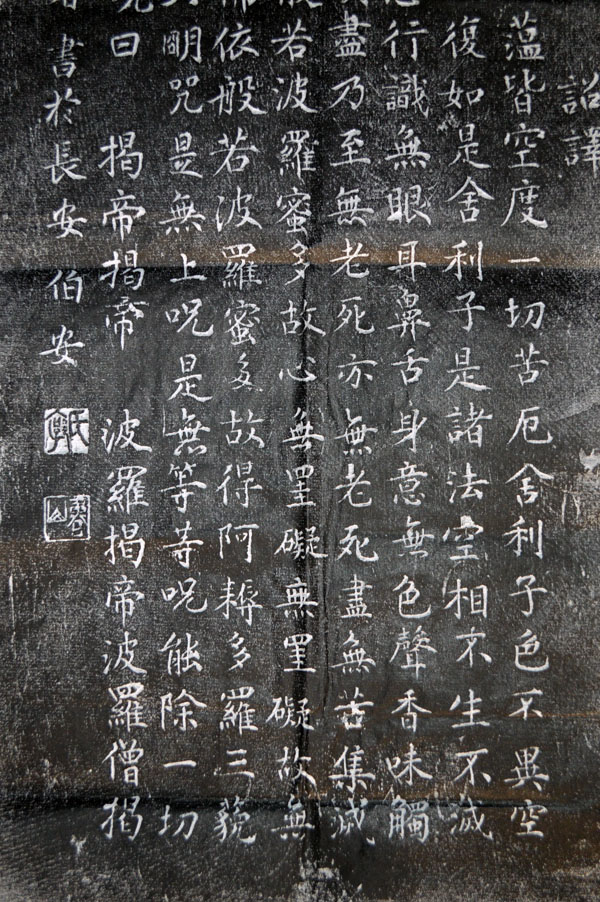 詔譯
薀皆空度一切苦厄舍利子色不異空
復如是舍利子是諸法空相不生不滅
行識無眼耳鼻舌身意無色聲香味觸
盡乃至無老死亦無老死盡無苦集滅
若波羅蜜多故心無罣礙無罣礙故無
依般若波羅蜜多故得阿耨多羅三藐
明咒是無上呪是無等等呪能除一切
曰 揭帝揭帝 波羅揭帝波羅僧揭
書於長安伯安